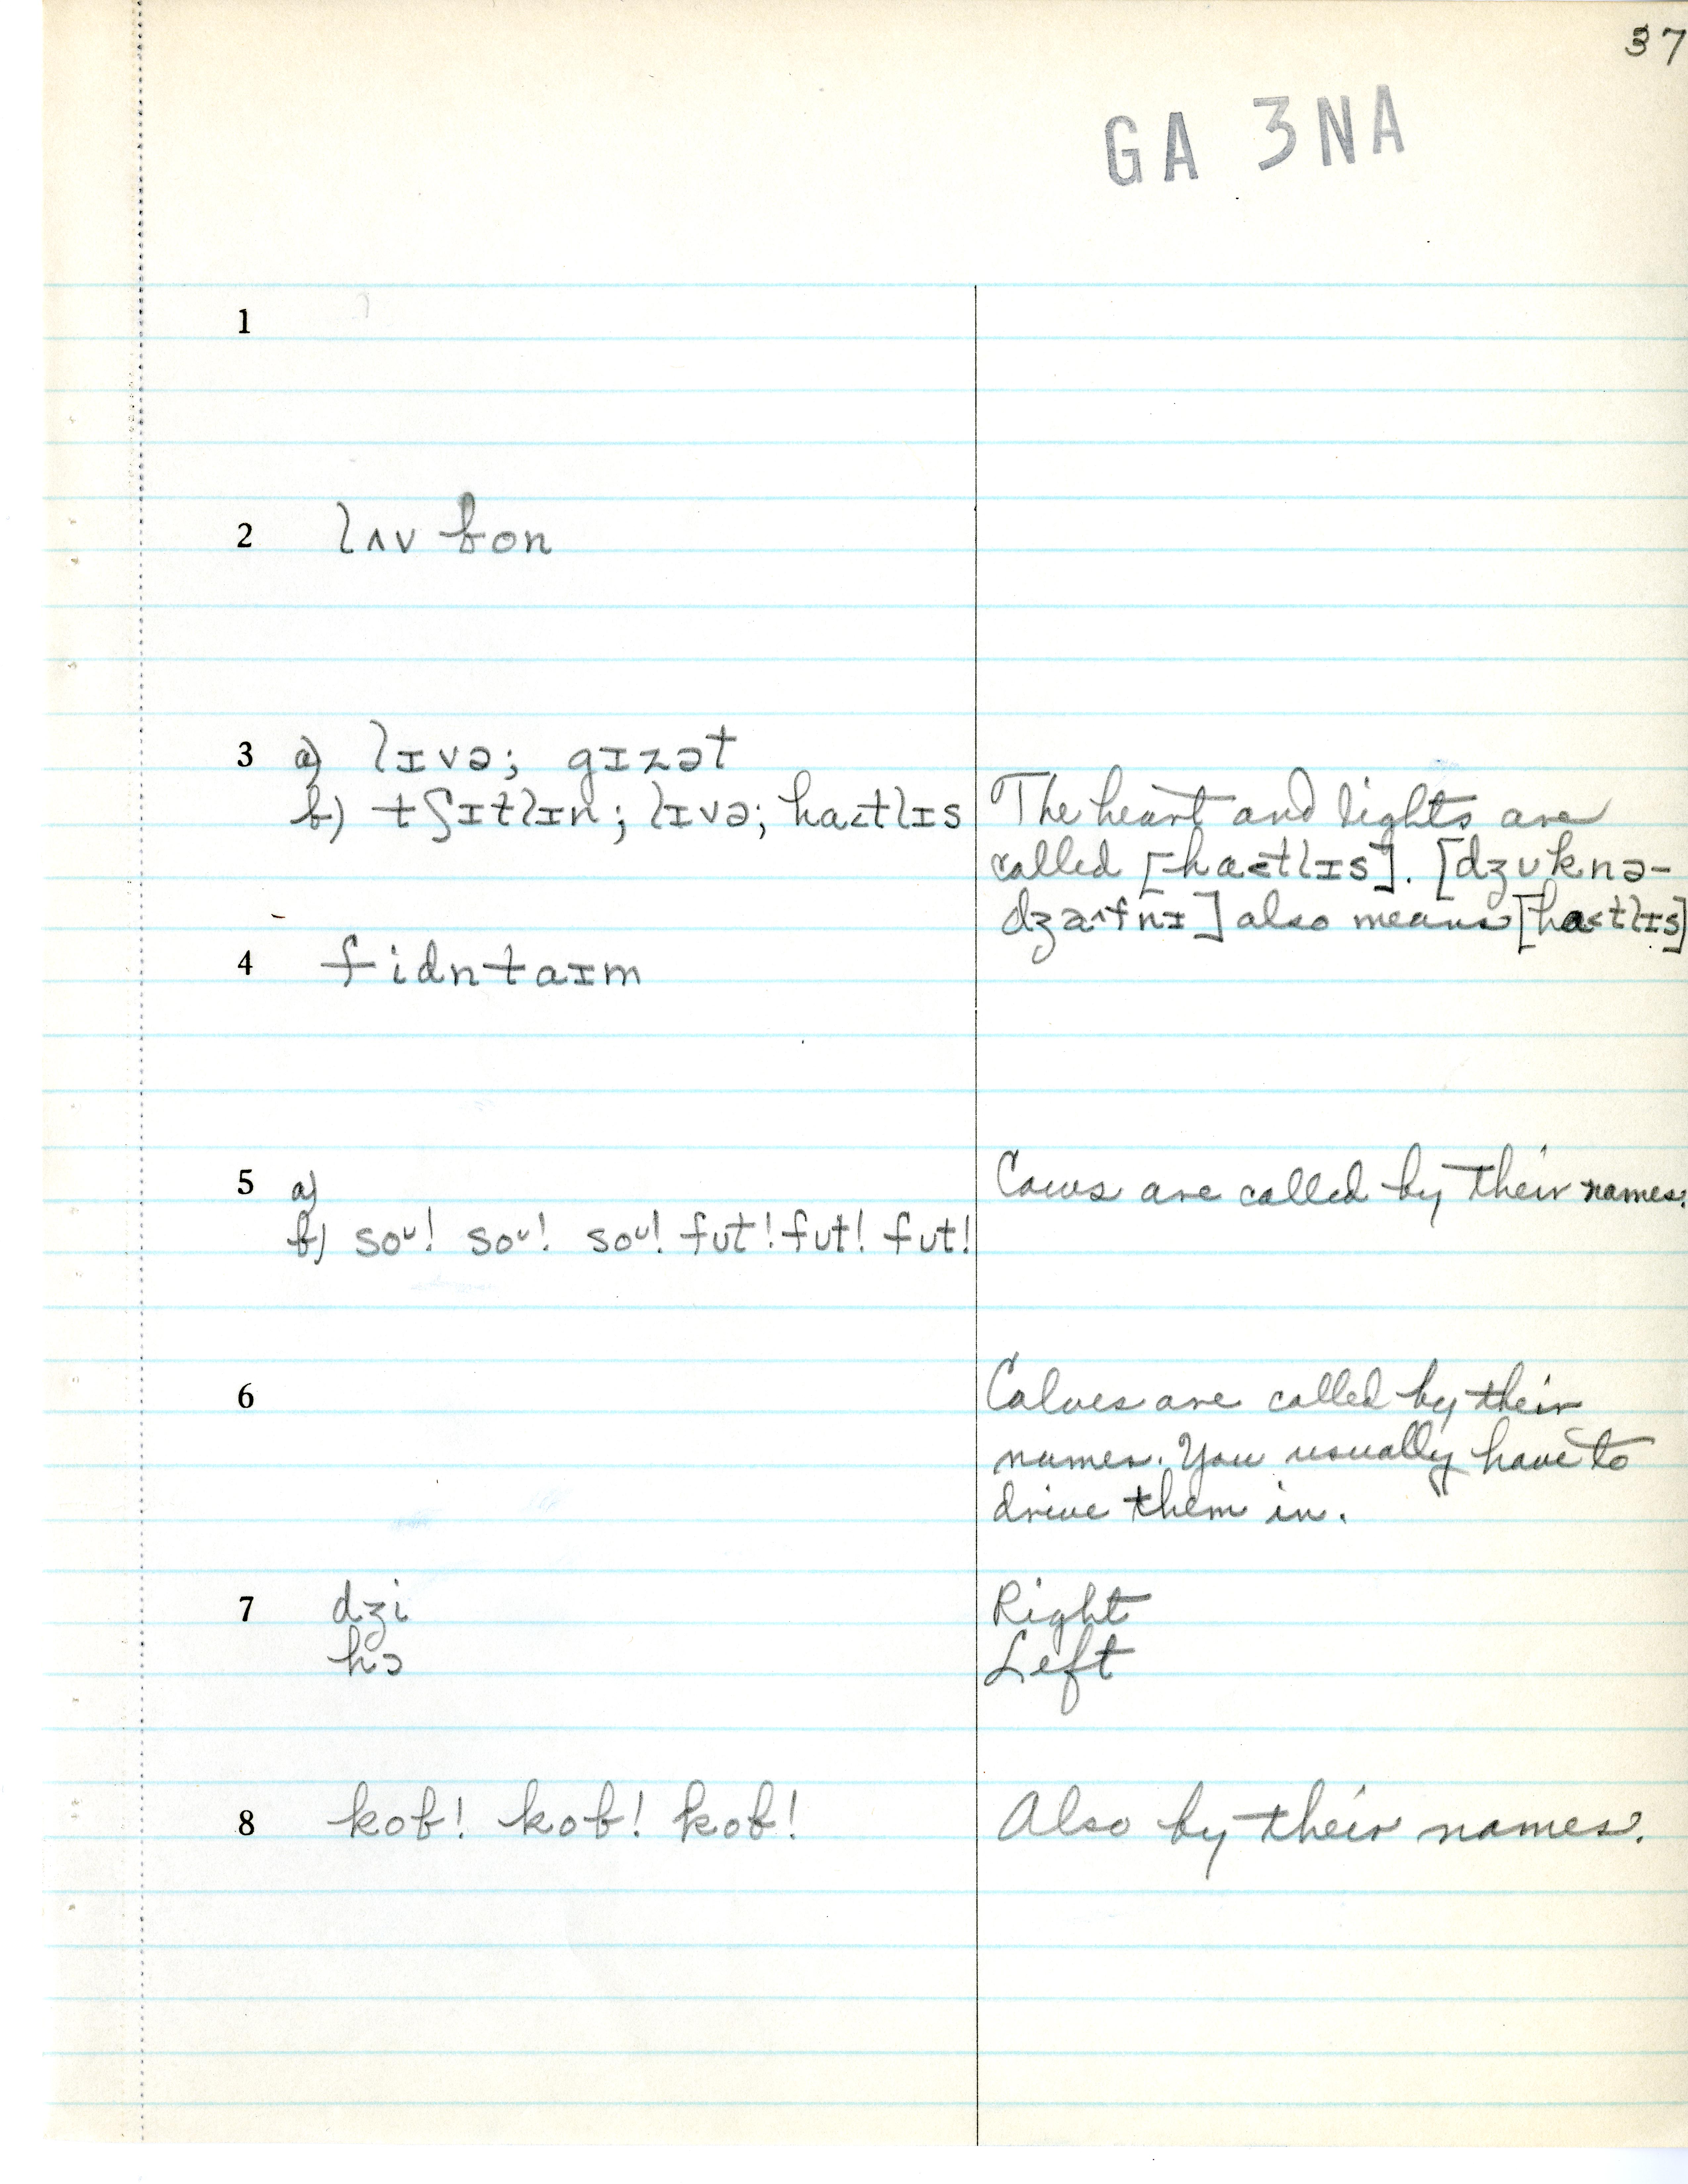 37
GA 3NA
1
2 lʌv bon
3 a) lɪvə; gɪzət
b) tʃɪtlɪn; lɪvə; ha<tlɪs
The heart and lights are
called [ha<tlɪs]. [dʒuknə-
also means [ha<tlɪs]
4 fidntaɪm
5 a)
Cows are called by their names.
b) soᴜ! soᴜ! soᴜ! fut! fut! fut!
6
Calves are called by their
names. You usually have to
drive them in.
7 dʒi Right
hɔ Left
8 kob! kob! kob! Also by their names.